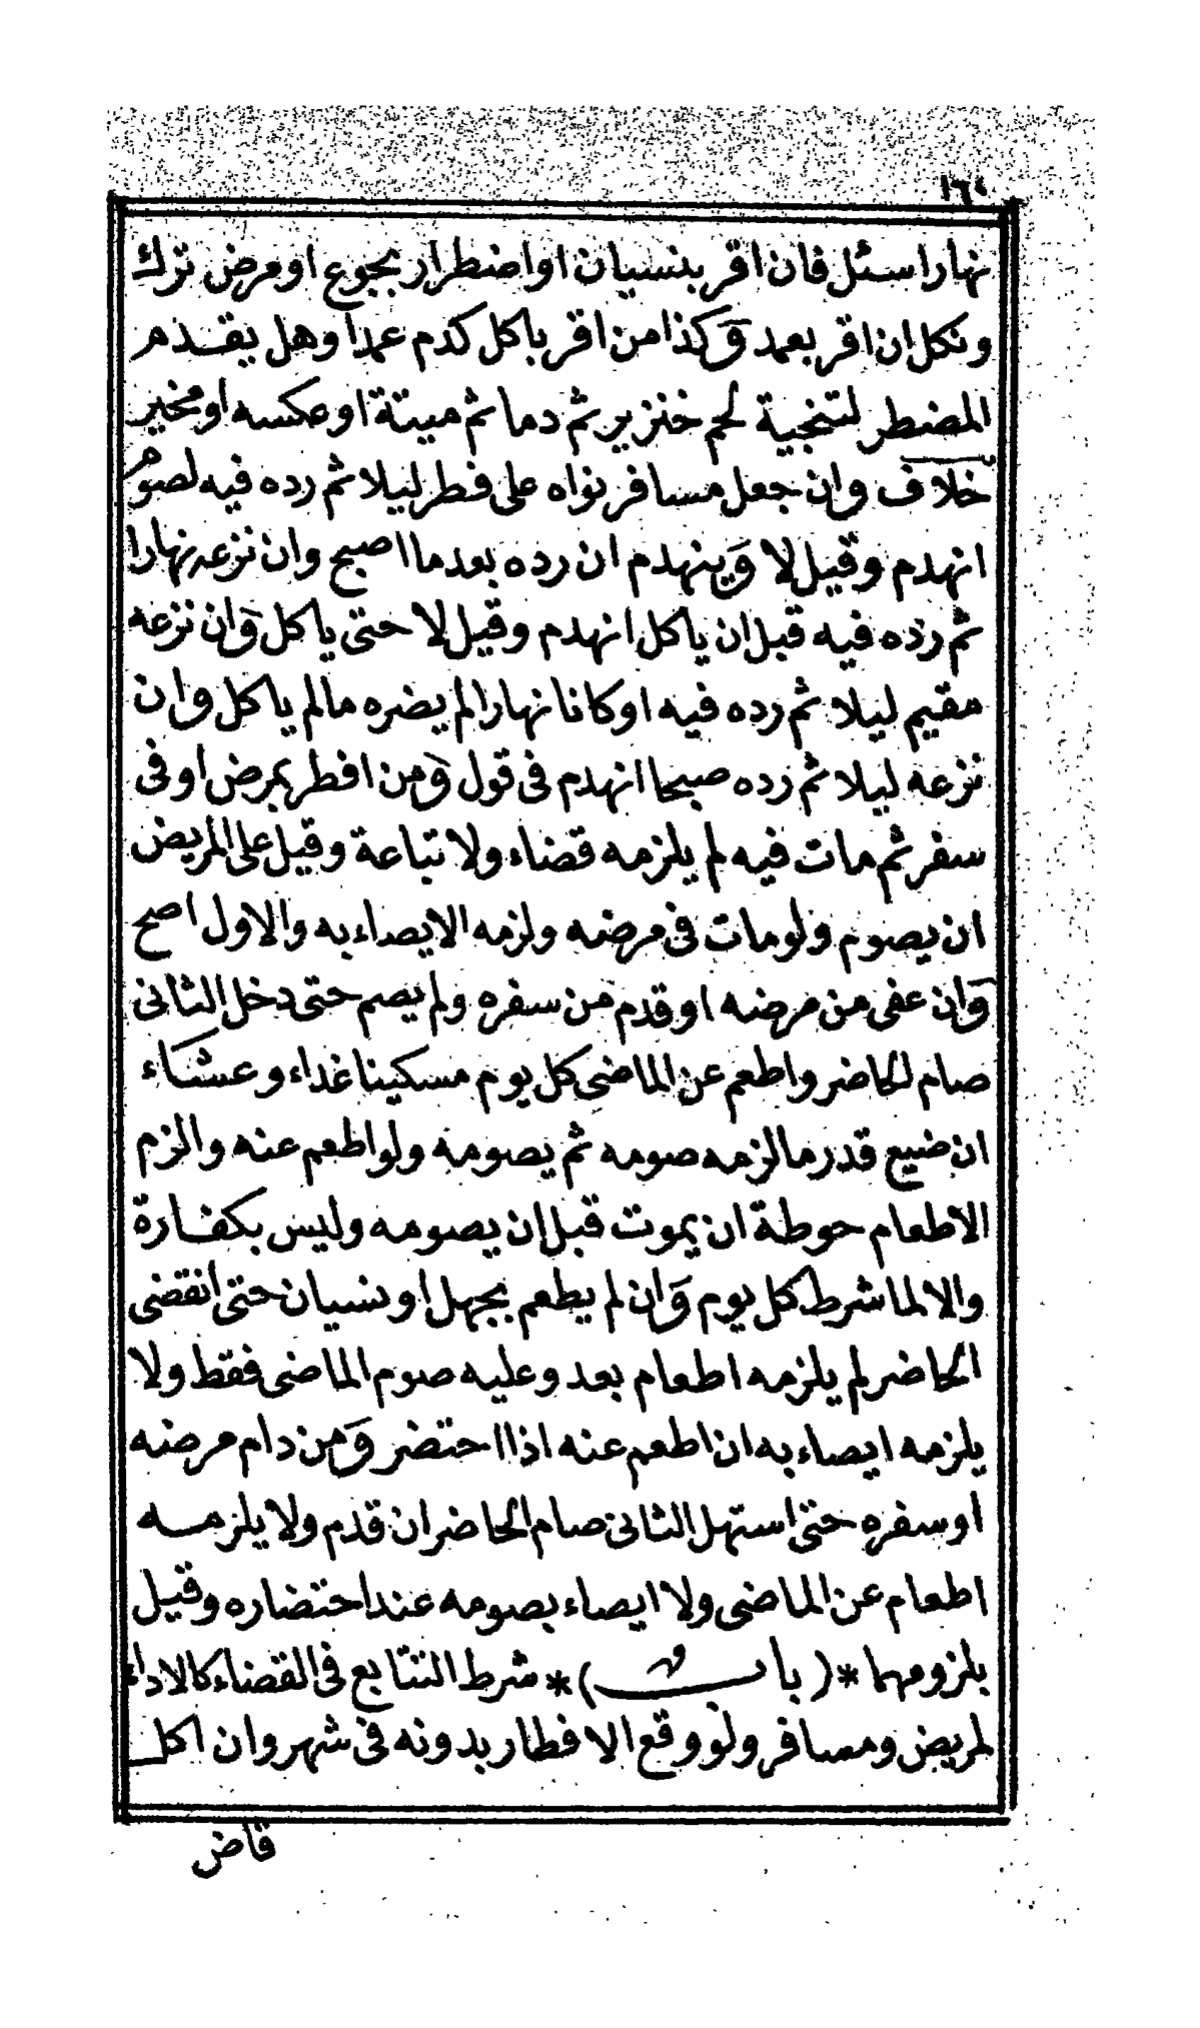 ١٦٤
نهارا سئل فان اقر بنسيان او اضطرار بجوع او مرض ترك
ونكل ان اقر بعمد وكذا من اقر باكل كدم عمدا وهل يقدم
المضطر لتنجية لحم خنزير ثم دما ثم ميتة او عكسه او مخير
خلاف وان جعل مسافر نواه على فطر ليلا ثم رده فيه لصوم
انهدم وقيل لا وينهدم ان رده بعد ما اصبح وان نزعه نهارا
ثم رده فيه قبل ان ياكل انهدم وقيل لا حتى ياكل وان نزعه
مقيم ليلا ثم رده فيه او كانا نهارا لم يضره ما لم ياكل وان
نزعه ليلا ثم رده صبحا انهدم فى قول ومن افطر بمرض او فى
سفر ثم مات فيه لم يلزمه قضاء ولا تباعة وقيل على المريض
ان يصوم ولو مات فى مرضه ولزمه الايصاء به والاول اصح
وان عفى من مرضه او قدم من سفره ولم يصم حتى دخل الثانى
صام الحاضر واطعم عن الماضى كل يوم مسكينا غداء وعشاء
ان ضيع قدر ما لزمه صومه ثم يصومه ولو اطعم عنه والزم
الاطعام حوطة ان يموت قبل ان يصومه وليس بكفارة
والا لما شرط كل يوم وان لم يطعم بجهل او نسيان حتى انقضى
الحاضر لم يلزمه اطعام بعد وعليه صوم الماضى فقط ولا
يلزمه ايصاء به ان اطعم عنه اذا احتضر ومن دام مرضه
او سفره حتى استهل الثانى صام الحاضر ان قدم ولا يلزمه
اطعام عن الماضى ولا ايصاء بصومه عند احتضاره وقيل
بلزومهما *( باب )* شرط التتابع فى القضاء كالاداء
لمريض ومسافر ولو وقع الافطار بدونه فى شهر وان اكل
قاض